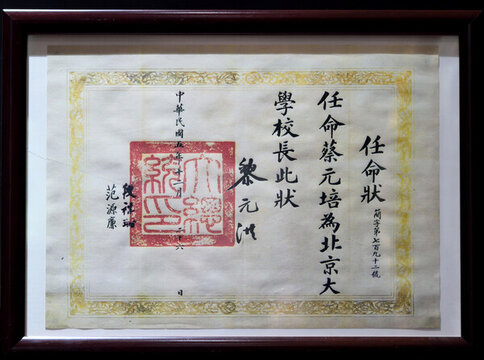 任命狀
簡字第七百九十三號
任命蔡元培為北京大
學校長此狀
黎元洪
大總統印
中華民國五年十二月二十六日
段祺瑞
范源廉